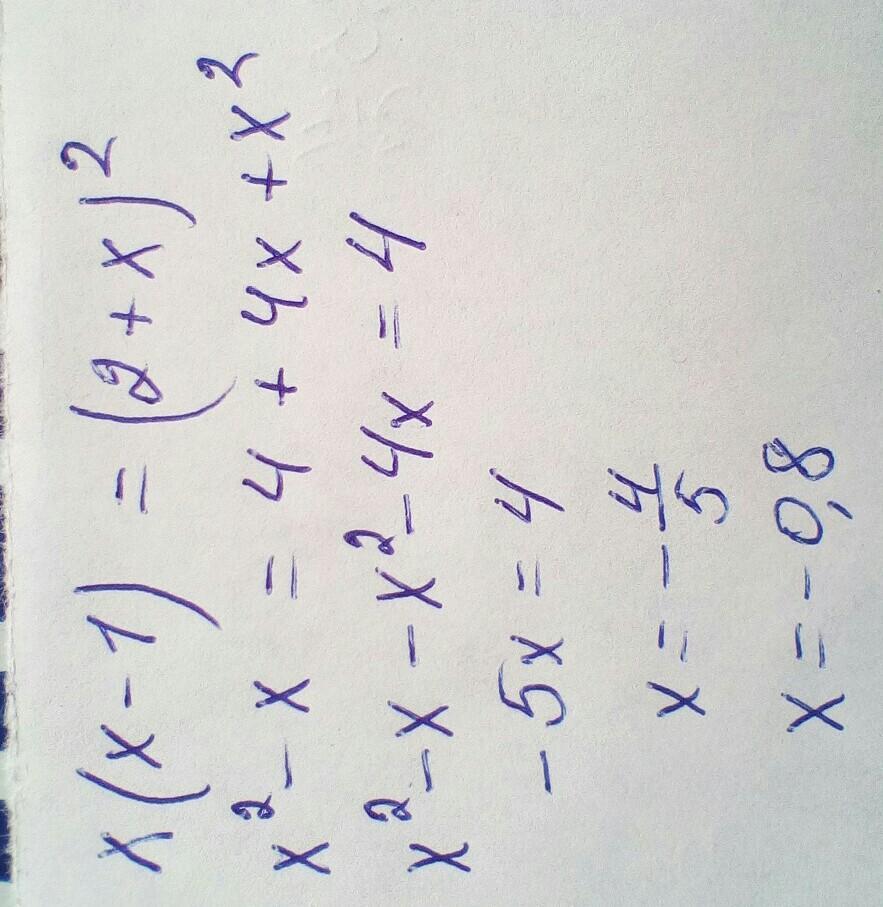 x(x-1) = (2+x)²
x²-x = 4+4x+x²
x²-x-x²-4x = 4
-5x = 4
x = -4/5
x = -0,8